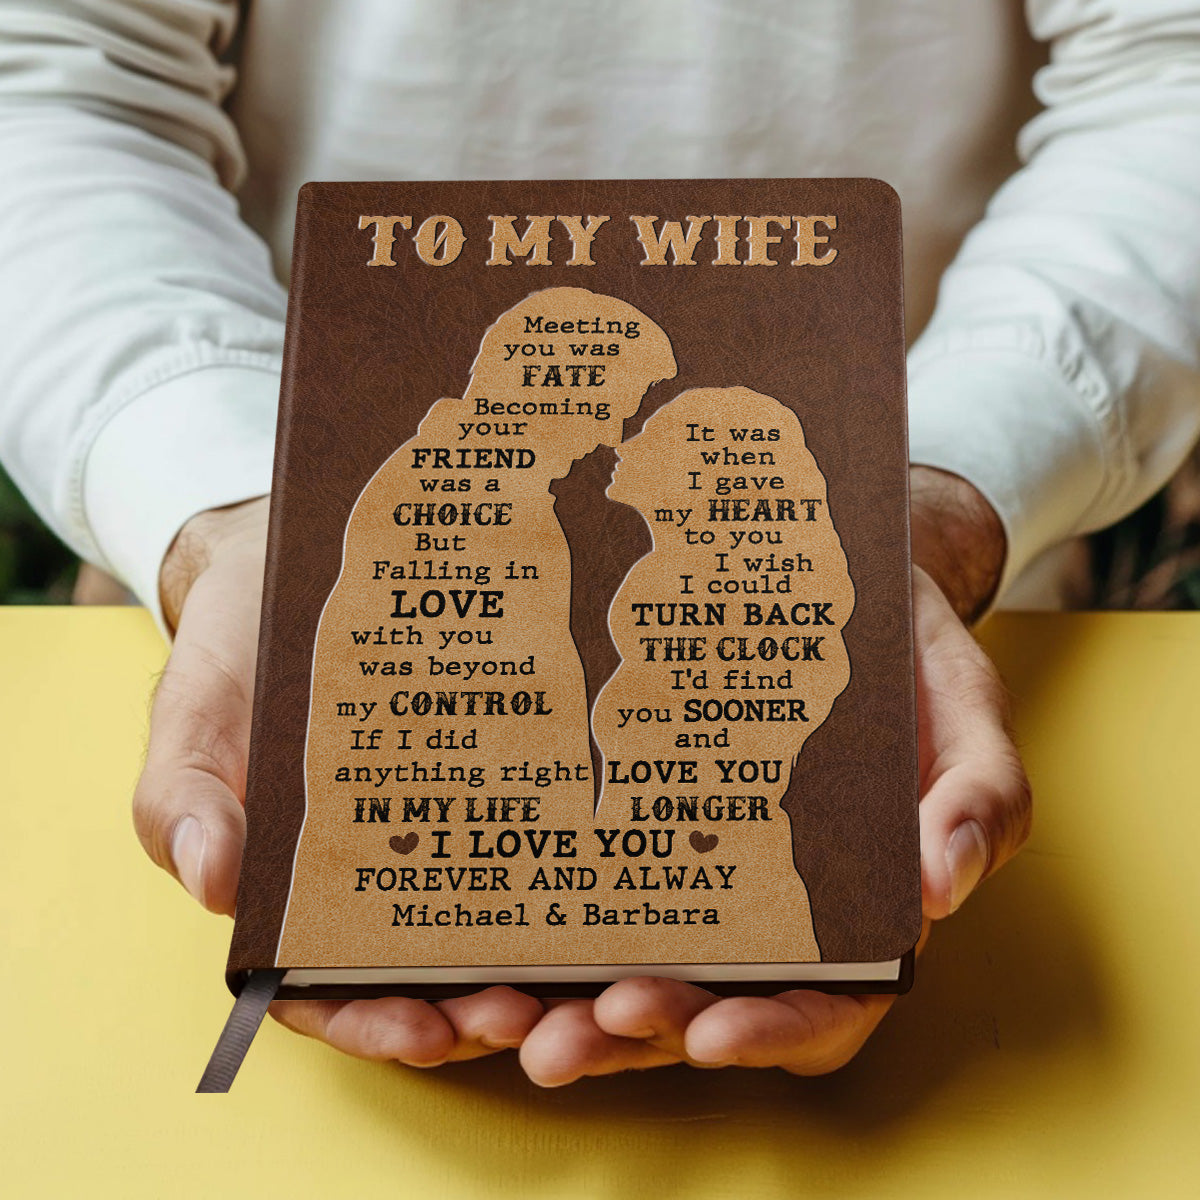 TO MY WIFE
Meeting
you was
FATE
Becoming
your
FRIEND
was a
CHOICE
But
Falling in
LOVE
with you
was beyond
my CONTROL
If I did
anything right
IN MY LIFE
It was
when
I gave
my HEART
to you
I wish
I could
TURN BACK
THE CLOCK
I'd find
you SOONER
and
LOVE YOU
LONGER
I LOVE YOU
FOREVER AND ALWAY
Michael & Barbara